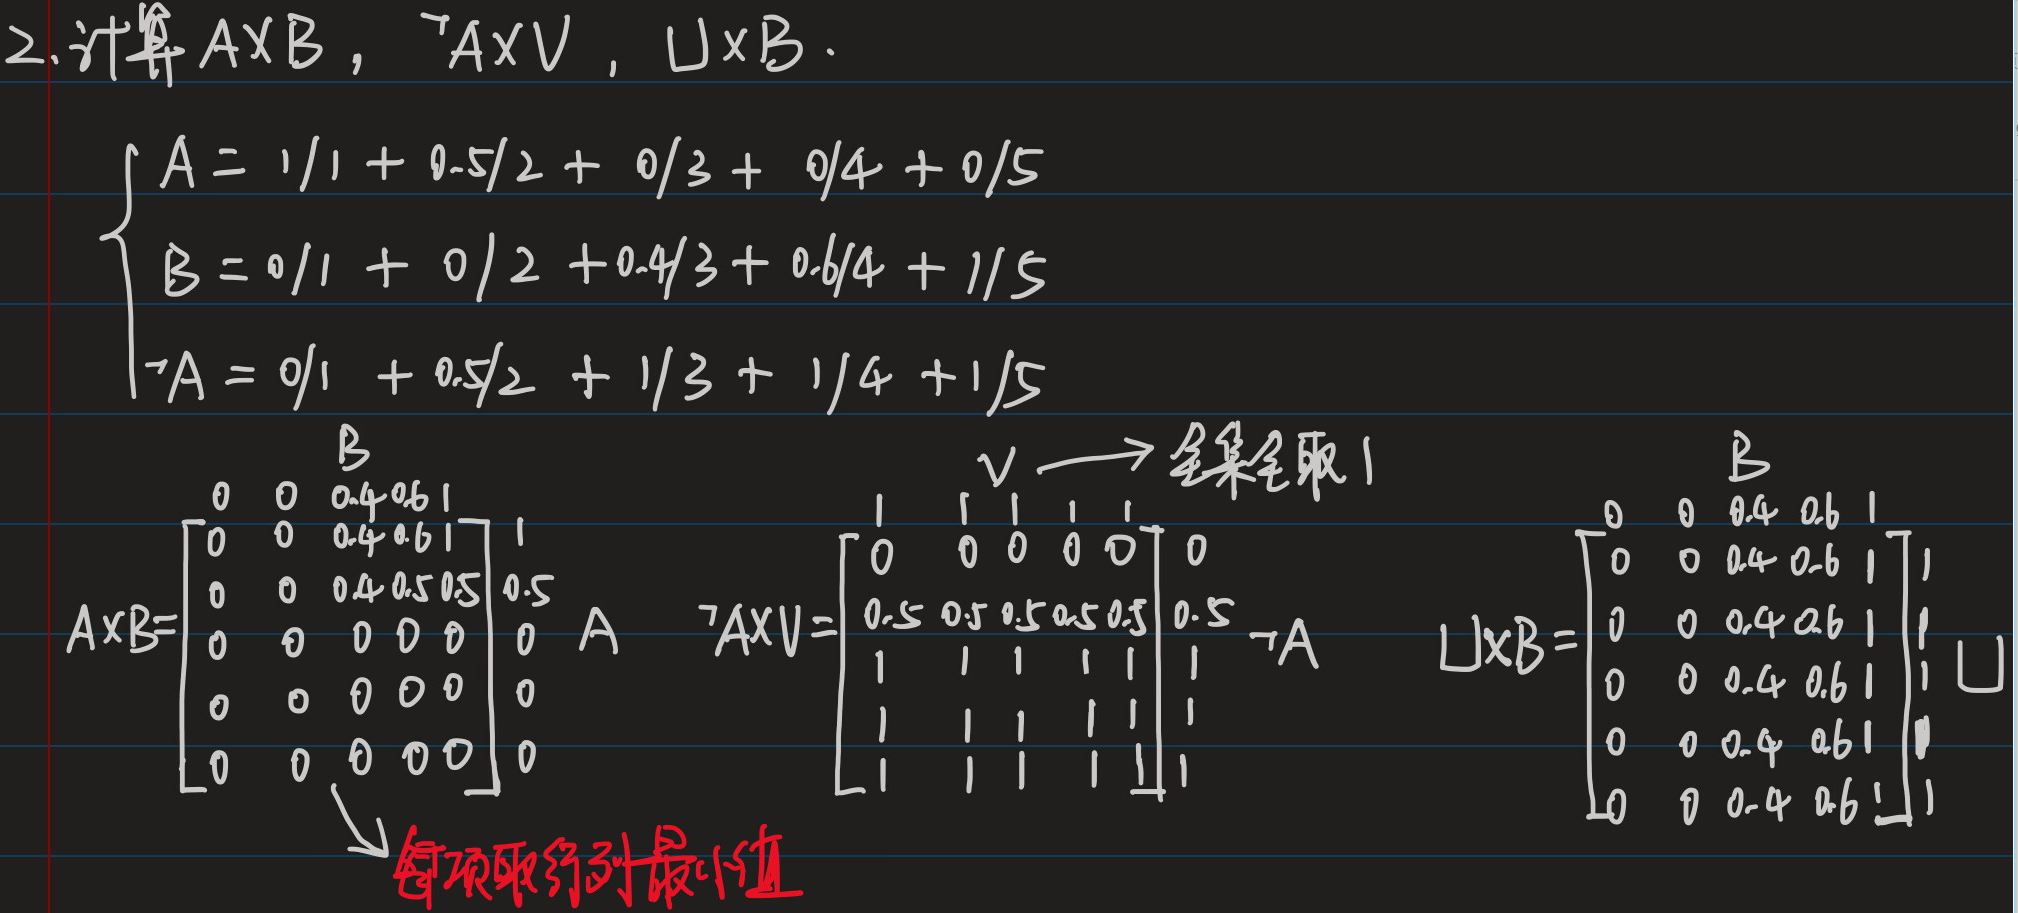 2.计算 A×B, ¬A×V, U×B.
A = 1/1 + 0.5/2 + 0/3 + 0/4 + 0/5
B = 0/1 + 0/2 + 0.4/3 + 0.6/4 + 1/5
¬A = 0/1 + 0.5/2 + 1/3 + 1/4 + 1/5
B
0 0 0.4 0.6 1
0 0 0.4 0.6 1 1
0 0 0.4 0.5 0.5 0.5
A×B= 0 0 0 0 0 0 A
0 0 0 0 0 0
0 0 0 0 0 0
每项取行列最小值
V → 全集全取1
1 1 1 1 1
0 0 0 0 0 0
0.5 0.5 0.5 0.5 0.5 0.5
¬A×V= 1 1 1 1 1 1 ¬A
1 1 1 1 1 1
1 1 1 1 1 1
B
0 0 0.4 0.6 1
0 0 0.4 0.6 1 1
0 0 0.4 0.6 1 1
U×B= 0 0 0.4 0.6 1 1 U
0 0 0.4 0.6 1 1
0 0 0.4 0.6 1 1